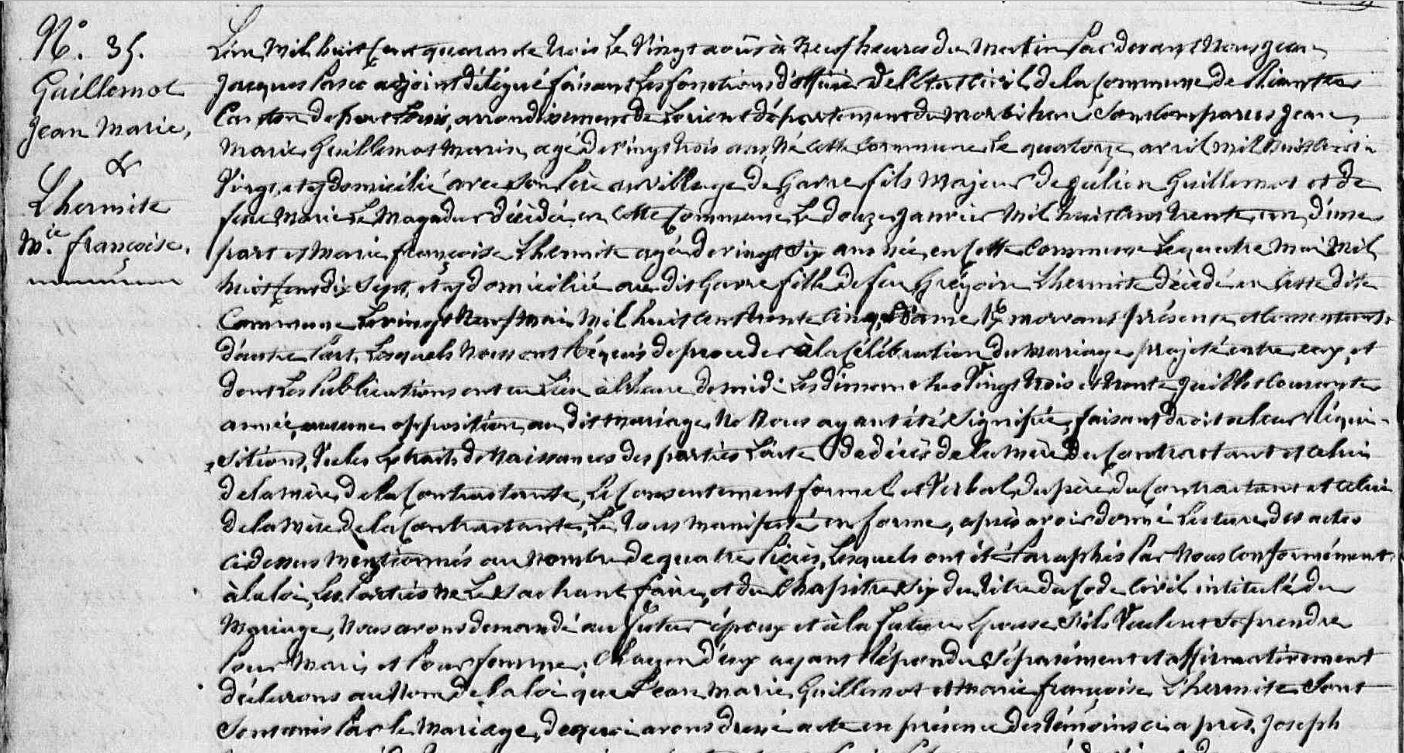 N.° 35.
Guillemot
Jean Marie,
&
Lhermite
M.ie françoise.
L'an Mil huit Cent quarante trois Le Vingt août à Neuf heures du Matin Par devant Nous Jean
Jacques adjoint délégué faisant Les fonctions d'officier De l'Etat Civil de la Commune de
Canton de port Louis, arrondissement de Lorient département du morbihan Sont Comparus Jean
Marie Guillemot Marin, agé de vingt trois ans, Né cette Commune Le quatorze avril mil huit Cent
Vingt, et y domicilié avec Son Père au village de Gavre fils Majeur de Julien Guillemot et de
feue Marie Le Magadur décédée en Cette Commune Le douze Janvier Mil huit Cent trente un, d'une
part et Marie françoise Lhermite agée de vingt Six ans née en Cette Commune Le quatre Mai Mil
huit Cent dix Sept, et y domiciliée au dit Gavre fille de feu Grégoire Lhermite décédé en Cette dite
Commune Le vingt Neuf Mai Mil huit Cent trente Cinq, présente et Consentante
d'autre Part, Lesquels Nous ont Réquis de proceder à la Célébration du Mariage projeté entre eux, et
dont Les Publications ont eu Lieu à l'heure de midi Les dimanches Vingt trois et trente Juillet Courante
année, aucune opposition au dit mariage Ne Nous ayant été Signifiée, faisant droit à leur Réqui-
sitions, Vu les Extraits de Naissances des parties L'acte De décès de la mère Du Contractant et celui
de la mère de la Contractante, Le Consentement formel et Verbal, du père du Contractant et celui
de la mère de la Contractante, Le tous manifesté en forme, après avoir donné Lecture des actes
ci dessus mentionnés au nombre de quatre Pièces, Lesquels ont été Paraphés Par Nous Conformément
à la loi, Les Parties Ne Le Sachant faire, et du Chapitre Six du titre du Code Civil intitulé du
Mariage, Nous avons demandé au futur époux et à la future Epouse S'ils Veulent Se prendre
Pour Mari et Pour femme, Chacun d'eux ayant Répondu Séparément et affirmativement
déclarons au Nom de la loi que Jean Marie Guillemot et Marie françoise Lhermite Sont
Sont unis Par le Mariage, de quoi avons dressé acte en présence des témoins ci après, Joseph